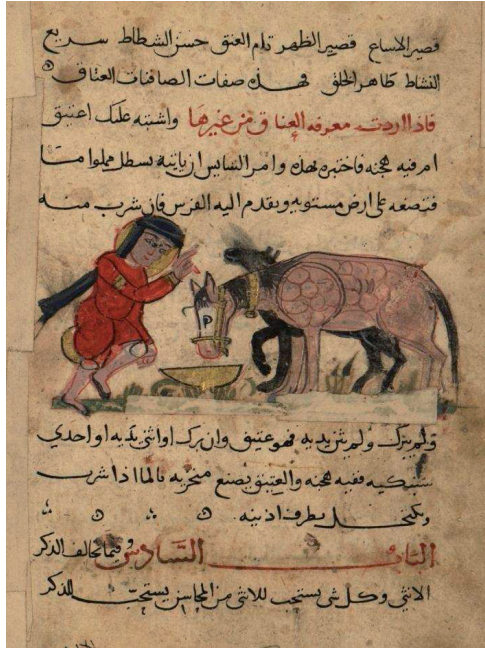 قصير الاساع قصير الظهر تام العنق حسن الشطاط سريع
النشاط ظاهر الخلق فهذه صفات الصافنات العتاق
فاذا اردت معرفه العتاق من غيرها واشتبه عليك اعتيق
ام فيه هجنه فاختبره بهذه وامر السايس ان ياتيه بسطل مملوا ما
فتضعه على ارض مستويه ويقدم اليه الفرس فان شرب منه
ولم يبرك ولم يثن يديه فهو عتيق وان برك او اثنى يديه او احدي
سنبكيه ففيه هجنه والعتيق يصنع منخريه بالما اذا شرب
بطرف اذنيه
الباب السادس فيما تخالف الذكر
الانثى وكل شى يستحب للانثى من المحاسن يستحب للذكر